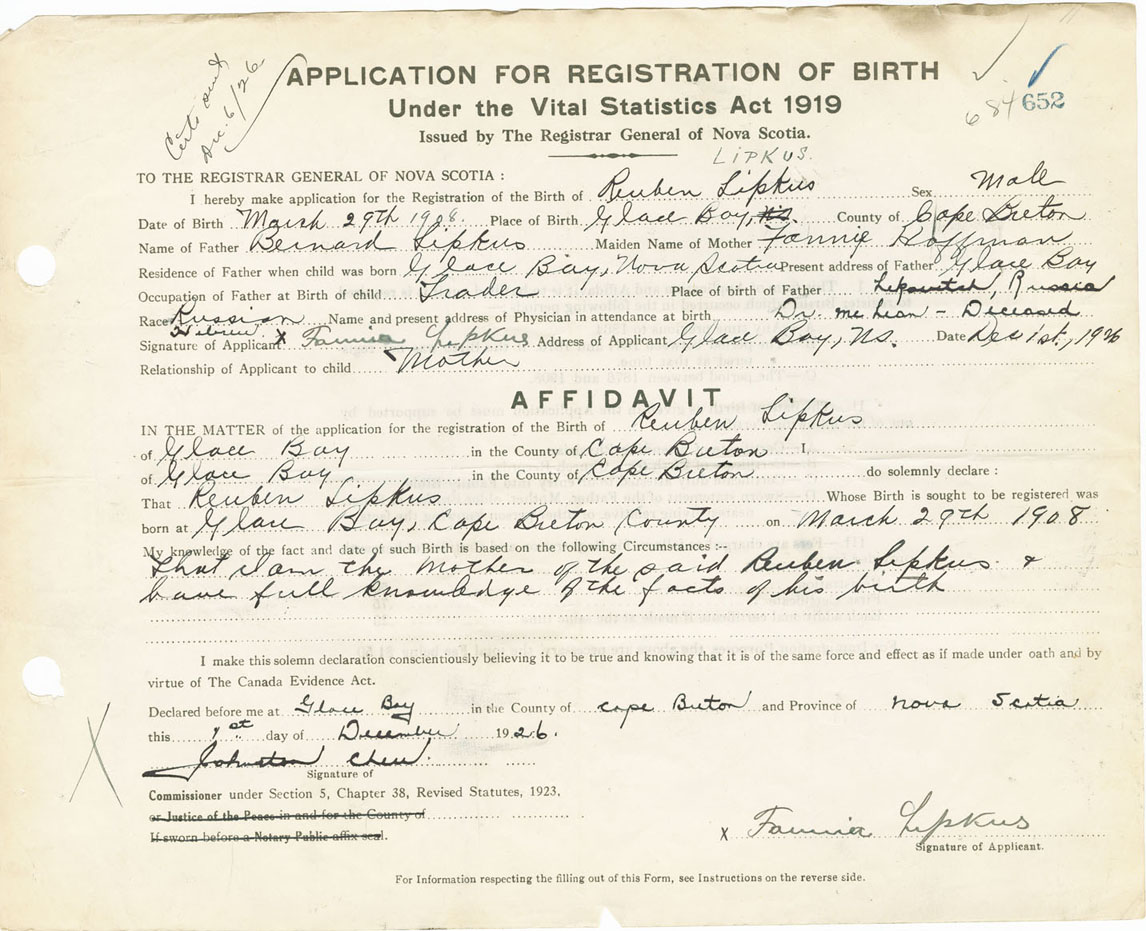 Certs issued
Dec. 6/26
APPLICATION FOR REGISTRATION OF BIRTH
Under the Vital Statistics Act 1919
684 652
Issued by The Registrar General of Nova Scotia.
LIPKUS.
TO THE REGISTRAR GENERAL OF NOVA SCOTIA :
I hereby make application for the Registration of the Birth of Reuben Lipkus Sex Male
Date of Birth March 29th 1908. Place of Birth Glace Bay, N.S. County of Cape Breton
Name of Father Bernard Lipkus Maiden Name of Mother Fannie Hoffman
Residence of Father when child was born Glace Bay, Nova Scotia Present address of Father Glace Bay
Occupation of Father at Birth of child Trader Place of birth of Father Russia
Race Russian Name and present address of Physician in attendance at birth Dr. McLean - Deceased
Hebrew
Signature of Applicant x Fannia Lipkus Address of Applicant Glace Bay, NS. Date Dec 1st, 1926
Relationship of Applicant to child Mother
AFFIDAVIT
IN THE MATTER of the application for the registration of the Birth of Reuben Lipkus
of Glace Bay in the County of Cape Breton I,
of Glace Bay in the County of Cape Breton do solemnly declare :
That Reuben Lipkus Whose Birth is sought to be registered was
born at Glace Bay, Cape Breton County on March 29th 1908
My knowledge of the fact and date of such Birth is based on the following Circumstances :--
That I am the Mother of the said Reuben Lipkus &
have full knowledge of the facts of his birth
I make this solemn declaration conscientiously believing it to be true and knowing that it is of the same force and effect as if made under oath and by
virtue of The Canada Evidence Act.
Declared before me at Glace Bay in the County of Cape Breton and Province of Nova Scotia
this 1st day of December 1926.
Johnston
Signature of
Commissioner under Section 5, Chapter 38, Revised Statutes, 1923,
or Justice of the Peace in and for the County of
If sworn before a Notary Public affix seal.
x Fannia Lipkus
Signature of Applicant.
For Information respecting the filling out of this Form, see Instructions on the reverse side.